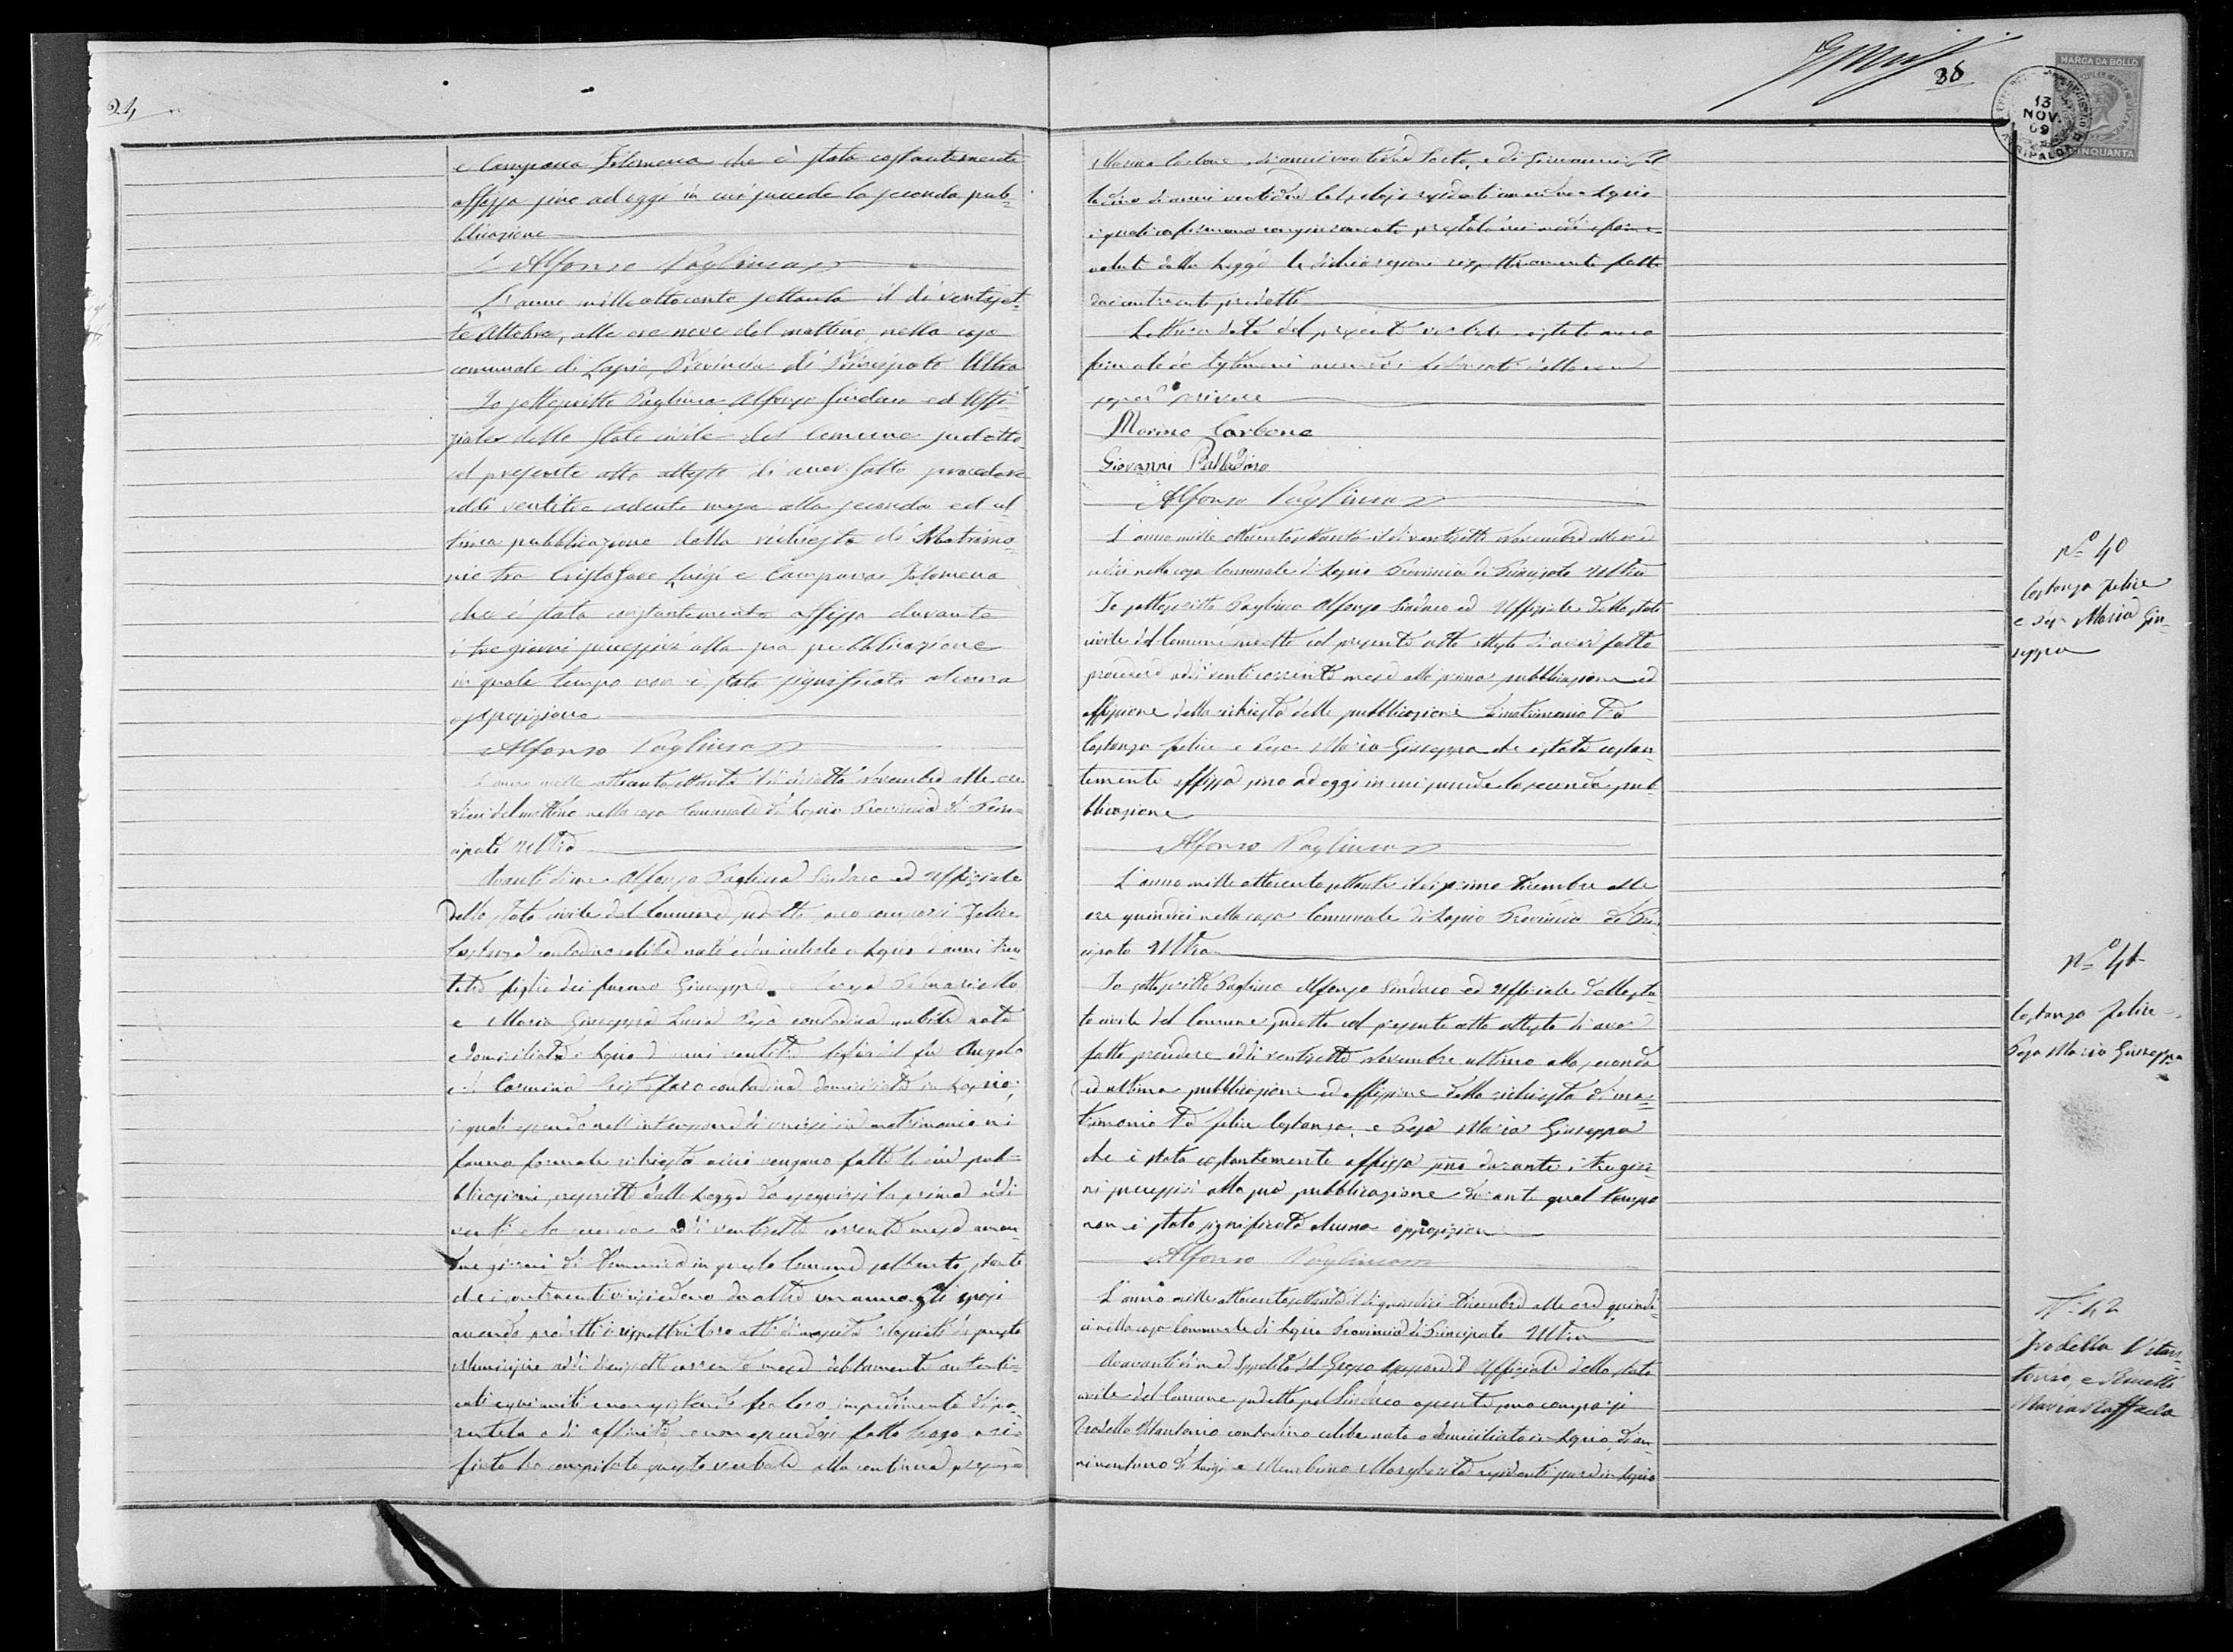 24
e Campana Filomena che è stata costantemente
affissa sino ad oggi in cui succede la seconda pub=
blicazione
Alfonso Pagliuca
L'anno mille ottocento settanta il dì ventiset=
te Ottobre, alle ore nove del mattino, nella casa
comunale di Lapio Provincia di Principato Ultra
Io sottoscritto Pagliuca Alfonso Sindaco ed Uffi=
ziale dello Stato civile del Comune sudetto
col presente atto attesto di aver fatto procedere
addì ventitre cadente mese alla seconda ed ul=
tima pubblicazione della richiesta di Matrimo=
nio tra Cristofaro Luigi e Campana Filomena
che è stata costantemente affissa durante
i tre giorni successivi alla sua pubblicazione
in quale tempo non è stata significata alcuna
opposizione
Alfonso Pagliuca
L'anno mille ottocento settanta il dì Novembre alle ore
dieci del mattino nella casa Comunale di Lapio Provincia di Prin=
cipato Ultra
Avanti di me Alfonso Pagliuca Sindaco ed Uffiziale
dello Stato civile del Comune sudetto sono comparsi Felice
Costanza contadino celibe nato e domiciliato a Lapio d'anni tren
figlio del furono Giuseppe e
e Maria Giuseppa Lucia Pesa contadina nubile nata
e domiciliata a Lapio d'anni figlia del fu Angelo
e di Carmina Cristofaro contadina domiciliata in Lapio,
i quali essendo nell'intenzione di unirsi in matrimonio mi
fanno formale richiesta acciò vengano fatte le due pub=
blicazioni prescritte dalla Legge da eseguirsi la prima addì
venti e la seconda addì ventisette corrente mese aman
due giorni di Domenica in questo Comune soltanto stante
che i contraenti vi risiedono da oltre un anno gli sposi
avendo prodotti i rispettivi loro atti di nascita rilasciati da questo
Municipio addì corrente mese debitamente autenti=
cati e non esistendo fra loro impedimento di pa=
rentela o di affinità, e non essendosi fatto luogo a ri=
fiuto ho compilato questo verbale alla continua presenza
35
MARCA DA BOLLO
CINQUANTA
13
NOV.
69
ATRIPALDA
Marino Carbone, di anni ventidue Sarto, e di Giovanni Pal
ladino di anni ventidue residenti amendue Lapio
i quali confermano con giuramento prestato nei modi e forme
volute dalla Legge la dichiarazione rispettivamente fatta
dai contraenti predetti
Lettura data del presente verbale è stato meco
firmato da testimoni avendo i dichiaranti detto non
saper scrivere
Marino Carbone
Giovanni Palladino
Alfonso Pagliuca
L'anno mille ottocento settanta il dì ventisette Novembre alle ore
nella casa Comunale di Lapio Provincia di Principato Ultra
Io sottoscritto Pagliuca Alfonso Sindaco ed Uffiziale dello stato
civile del Comune sudetto col presente atto attesto di aver fatto
procedere addì venti corrente mese alla prima pubblicazione ed
affissione della richiesta delle pubblicazioni di matrimonio tra
Costanza Felice e Pesa Maria Giuseppa che è stata costan
temente affissa sino ad oggi in cui succede la seconda pub=
blicazione
Alfonso Pagliuca
L'anno mille ottocento settanta il dì primo Dicembre alle
ore quindici nella casa Comunale di Lapio Provincia di Prin
cipato Ultra
Io sottoscritto Pagliuca Alfonso Sindaco ed Uffiziale dello sta
to civile del Comune sudetto col presente atto attesto di aver
fatto procedere addì ventisette Novembre ultimo alla seconda
ed ultima pubblicazione ed affissione della richiesta di ma=
trimonio tra Felice Costanza, e Pesa Maria Giuseppa
che è stata costantemente affissa sino durante i tre gior
ni successivi alla sua pubblicazione durante qual tempo
non è stata significata alcuna opposizione
Alfonso Pagliuca
L'anno mille ottocento settanta il dì quindici Dicembre alle ore quindi
ci nella casa Comunale di Lapio Provincia di Principato Ultra
Avanti di me Ippolito Del Grosso Assessore ed Uffiziale dello stato
civile del Comune sudetto pel Sindaco assente sono comparsi
Prodella Vitantonio contadino celibe nato e domiciliato in Lapio, di an
ni ventuno di Luigi e Margherita residenti pure in Lapio
No 40
Costanza Felice
e Pesa Maria Giu=
seppa
No 41
Costanza Felice
Pesa Maria Giuseppa
No 42
Prodella Vitan=
tonio, e
Maria Raffaela